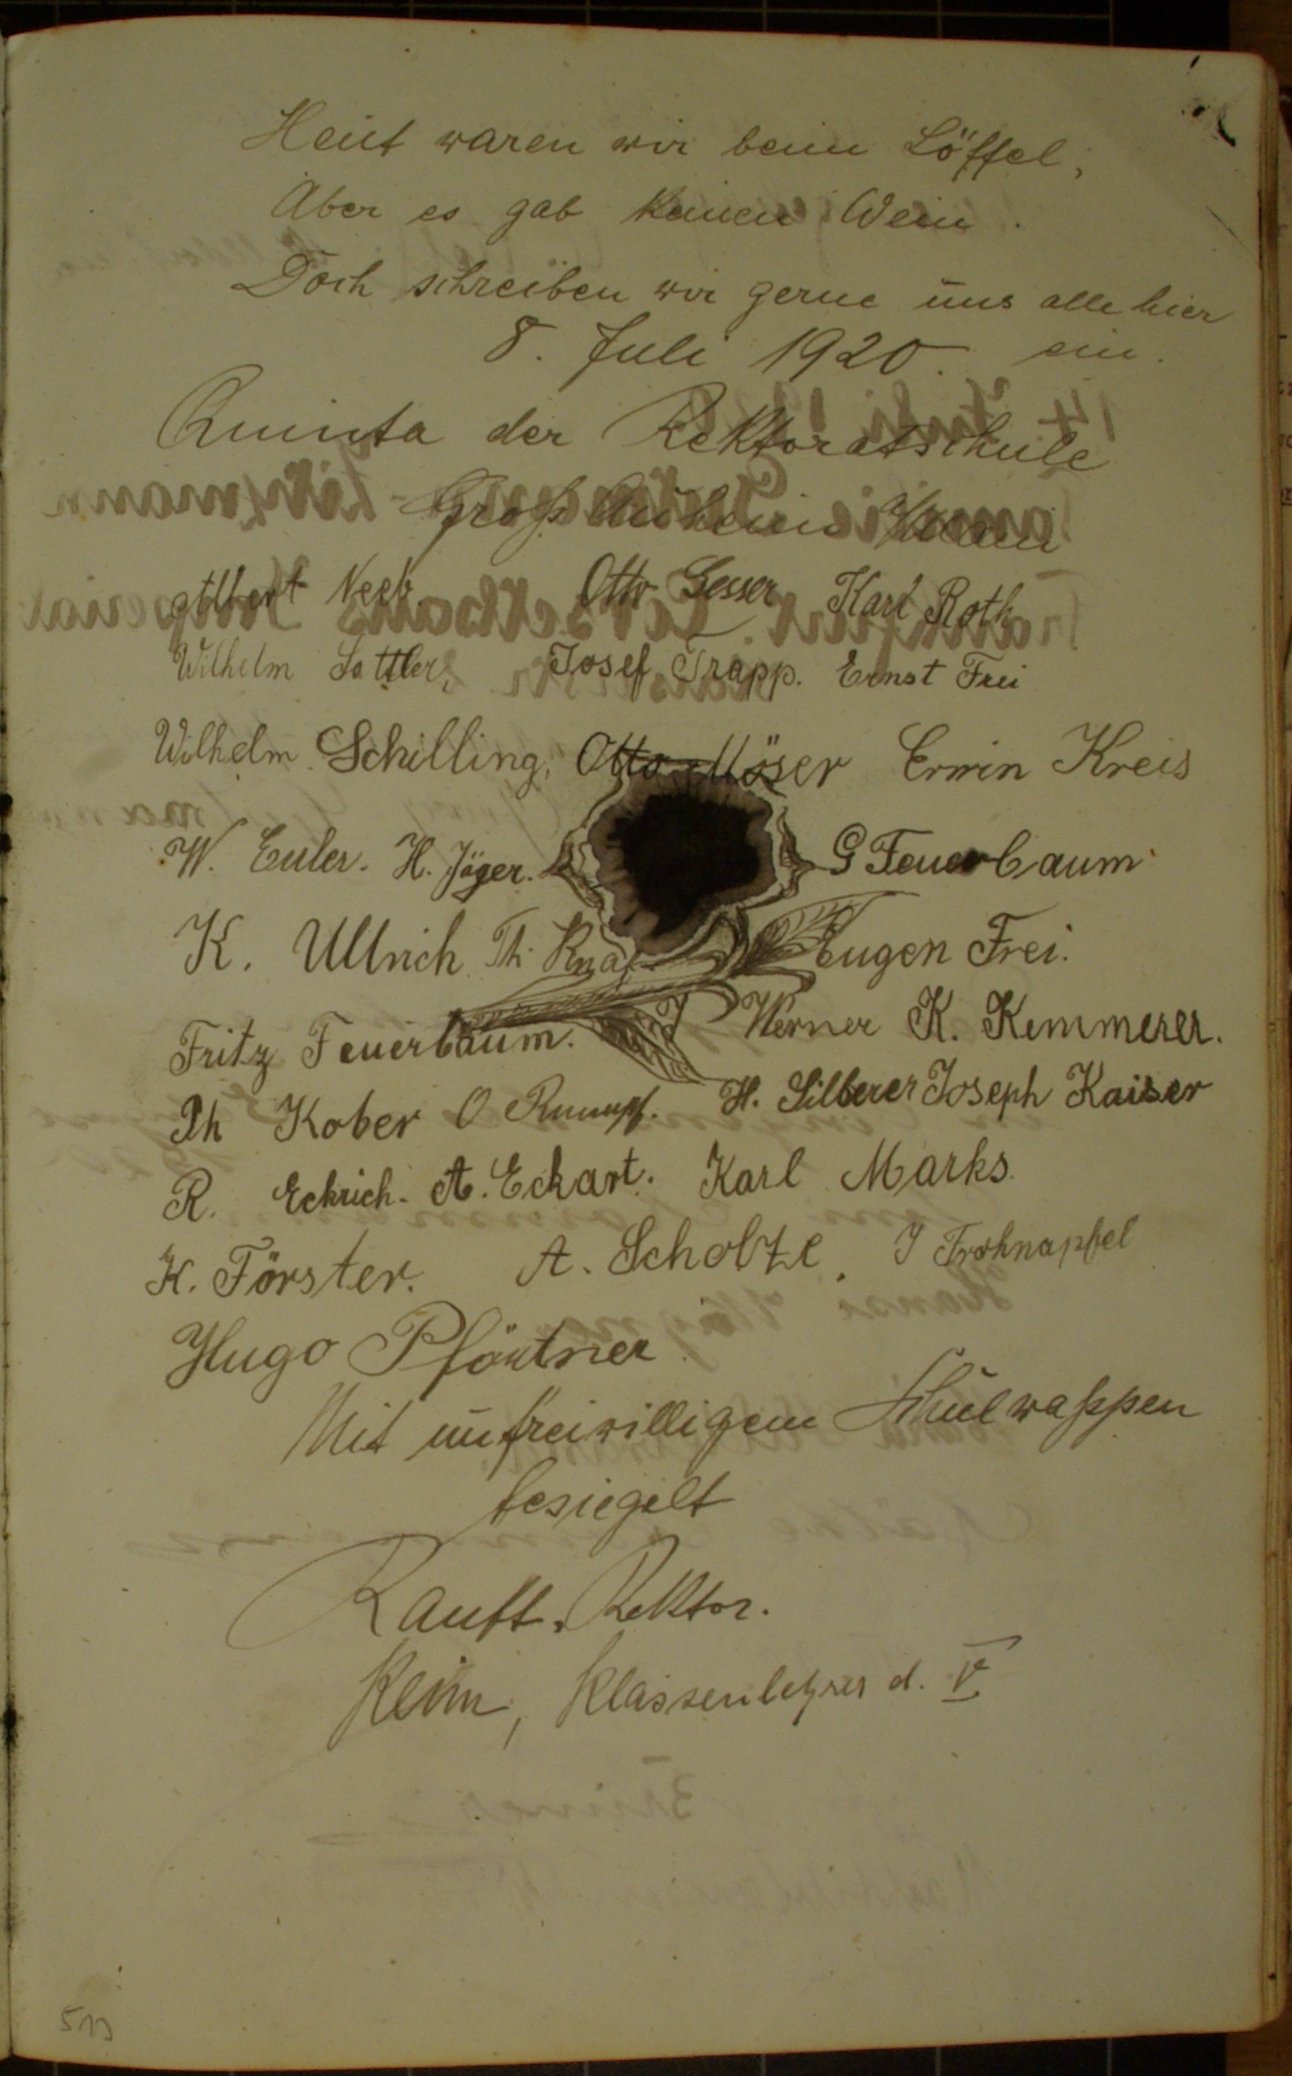 Heut waren wir beim Löffel,
Aber es gab keinen Wein.
Doch schreiben wir gerne uns alle hier
ein.
8. Juli 1920.
Quinta der Rektoratschule
Groß Auheim Main
Albert Neeb Otto Gesser Karl Roth
Wilhelm Sattler, Josef Trapp. Ernst Frei
Wilhelm Schilling, Otto Möser Erwin Kreis
W. Euler. H. Jäger. G Feuerbaum
K. Ullrich Th. Knaf Eugen Frei.
Fritz Feuerbaum. Werner K. Kemmerer.
Ph Kober O Rumpf. H. Silberer Joseph Kaiser
R. Eckrich. A. Eckart. Karl Marks.
K. Förster. A. Scholze, J Trohnapfel
Hugo Pförtner
Mit unfreiwilligem Schulwappen
besiegelt
Rauft. Rektor.
Keim, Klassenlehrer d. V